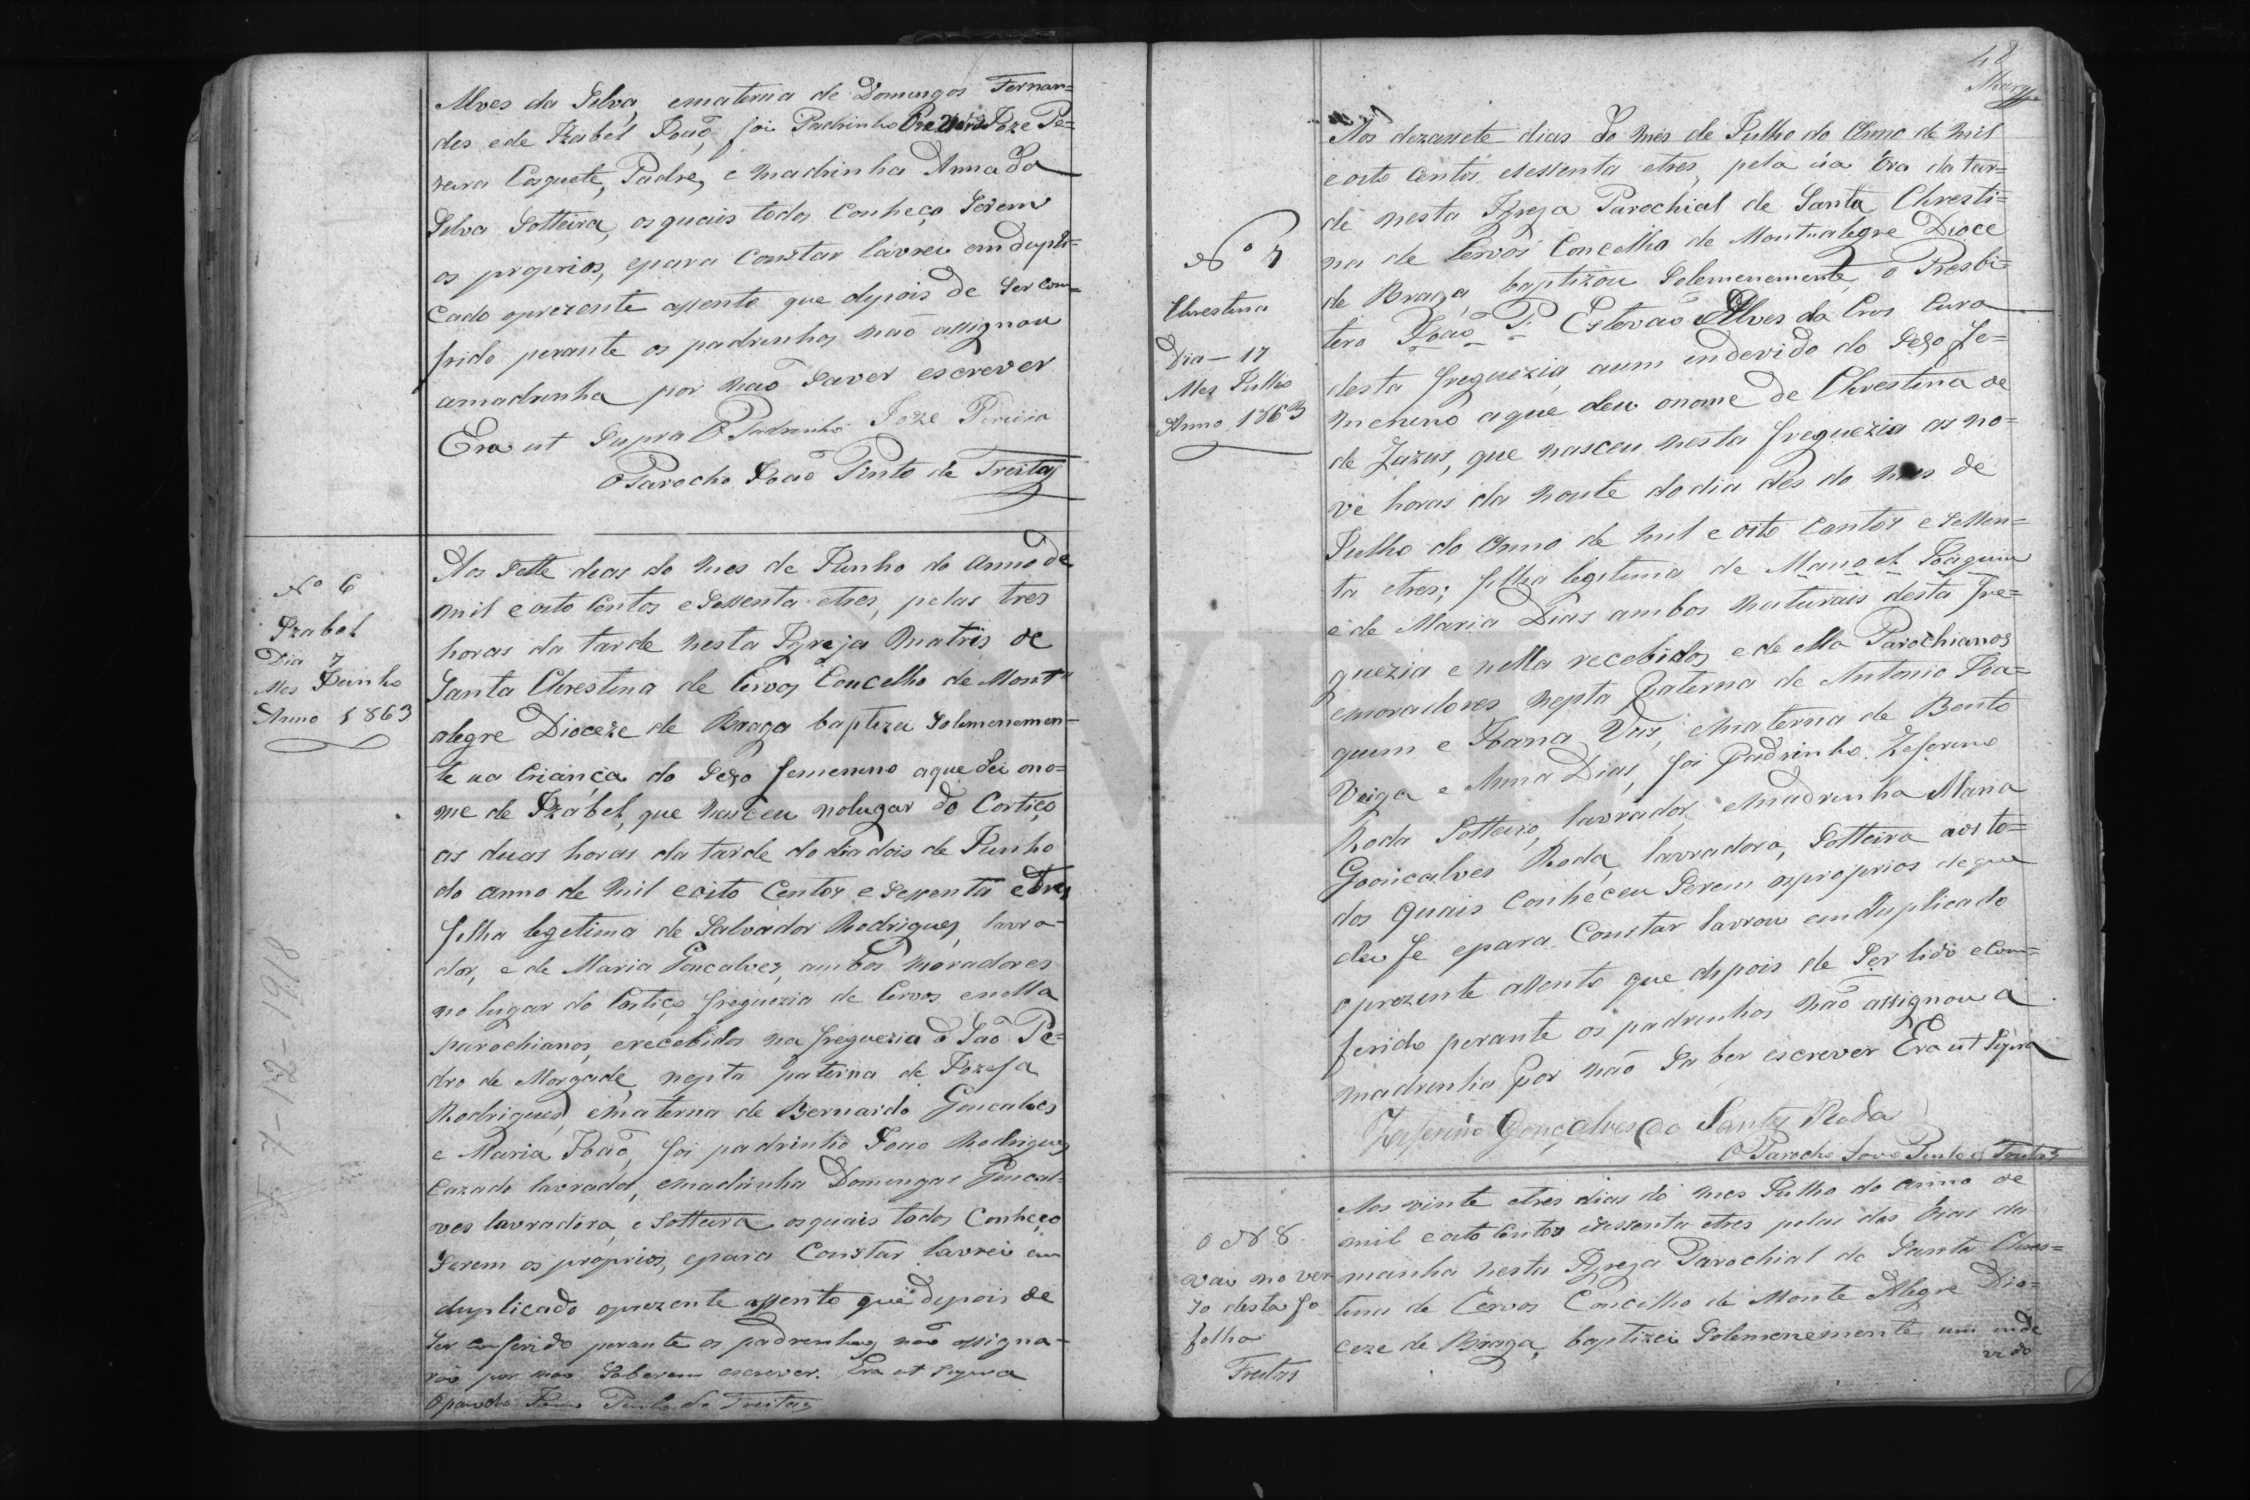 Alves da Silva, ematerna de Domingos Fernan=
des ede Izabel João, foi Padrinho Joze Pe=
reira Padre, e madrinha Anna da
Silva Solteira, os quais todos Conheço Serem
os proprios, epara Constar lavrei em dupli=
cado oprezente assento que depois de Ser con=
frido perante os padrinhos não assignou
amadrinha por não Saver escrever
Era ut Supra O Padrinho Joze Pereira
O Parocho João Pinto de Freitas
Nº 6
Izabel
Dia 7
Mes Junho
Anno 1863
Aos Sette dias do mes de Junho do Anno de
mil e oito Centos e Sessenta etres, pelas tres
horas da tarde nesta Igreja Matris de
Santa Chrestina de Cervos Concelho de Mont
alegre Dioceze de Braga baptizei Solemnemen=
te ua Criança do Sexo femenino aque dei ono=
me de Izabel, que nasceu nolugar do Cortiço
as duas horas da tarde do dia dois de Junho
do anno de mil eoito Centos e Sessenta etres
filha legetima de Salvador Rodrigues, lavra=
dor, e de Maria Goncalves, ambos moradores
no lugar do Cortiço freguezia de Cervos enella
parochianos, erecebidos na freguezia de São Pe=
dro de Morgade, nepta paterna de Jozefa
Rodrigues, ematerna de Bernardo Goncalves
e Maria João, foi padrinho João Rodrigues
Cazado lavrador, emadrinha Domingas Goncal=
ves lavradora, e Solteira osquais todos Conheço
Serem os proprios, epara Constar lavrei em
duplicado oprezente assento que depois de
Ser conferido perante os padrinhos não assigna=
rão por não Saberem escrever. Era ut Supra
O parocho João Pinto de Freitas
7-12-1918
48
Nº 7
Chrestina
Dia - 17
Mez Julho
Anno 1863
Aos dezasete dias do mes de Julho do Anno de mil
e oito Centos esessenta etres, pela úa óra da tar=
de nesta Igreja Parochial de Santa Chresti=
na de Cervos Concelho de Montealegre Dioce
de Braga, baptizou Solemnemente, o Presbi=
tero João P. Estevão Alves da Cros Cura
desta freguezia, aum endevido do Sexo fe=
menino aque deu onome de Chrestina de
de Jazus, que nasceu nesta freguezia as no=
ve horas da noute do dia des do mes de
Julho do Anno de mil e oito Centos e Sessen=
ta etres; filha legetima de Manoel Joaquim
e de Maria Dias ambos naturais desta fre=
guezia e nella recebidos, e de ella Parochianos
emoradores nepta paterna de Antonio Joa=
quim e Joana Vas, ematerna de Bento
Veiga e Anna Dias, foi Padrinho Zeferino
Roda Solteiro, lavrador, emadrinha Maria
Gonicalves Roda, lavradora, Solteira aos to=
dos Quais Conheceu Serem osproprios deque
deu fe epara Constar lavrou emduplicado
oprezente assento que depois de Ser lido econ=
ferido perante os padrinhos não assignou a
madrinha por não Saber escrever Era ut Supra
Zeferino Gonçalves do Santos Roda
O Parocho João Pinto de Freitas
O Nº 8
vai no ver
so desta fo
folha
Freitas
Aos vinte etres dias do mes Julho do anno de
mil eoito Centos esessenta etres pelas des óras da
manha nesta Igreja Parochial de Santa Chres=
tina de Cervos Concelho de Monte Alegre Dio=
ceze de Braga, baptizei Solemnemente um inde
vido
ADVRL